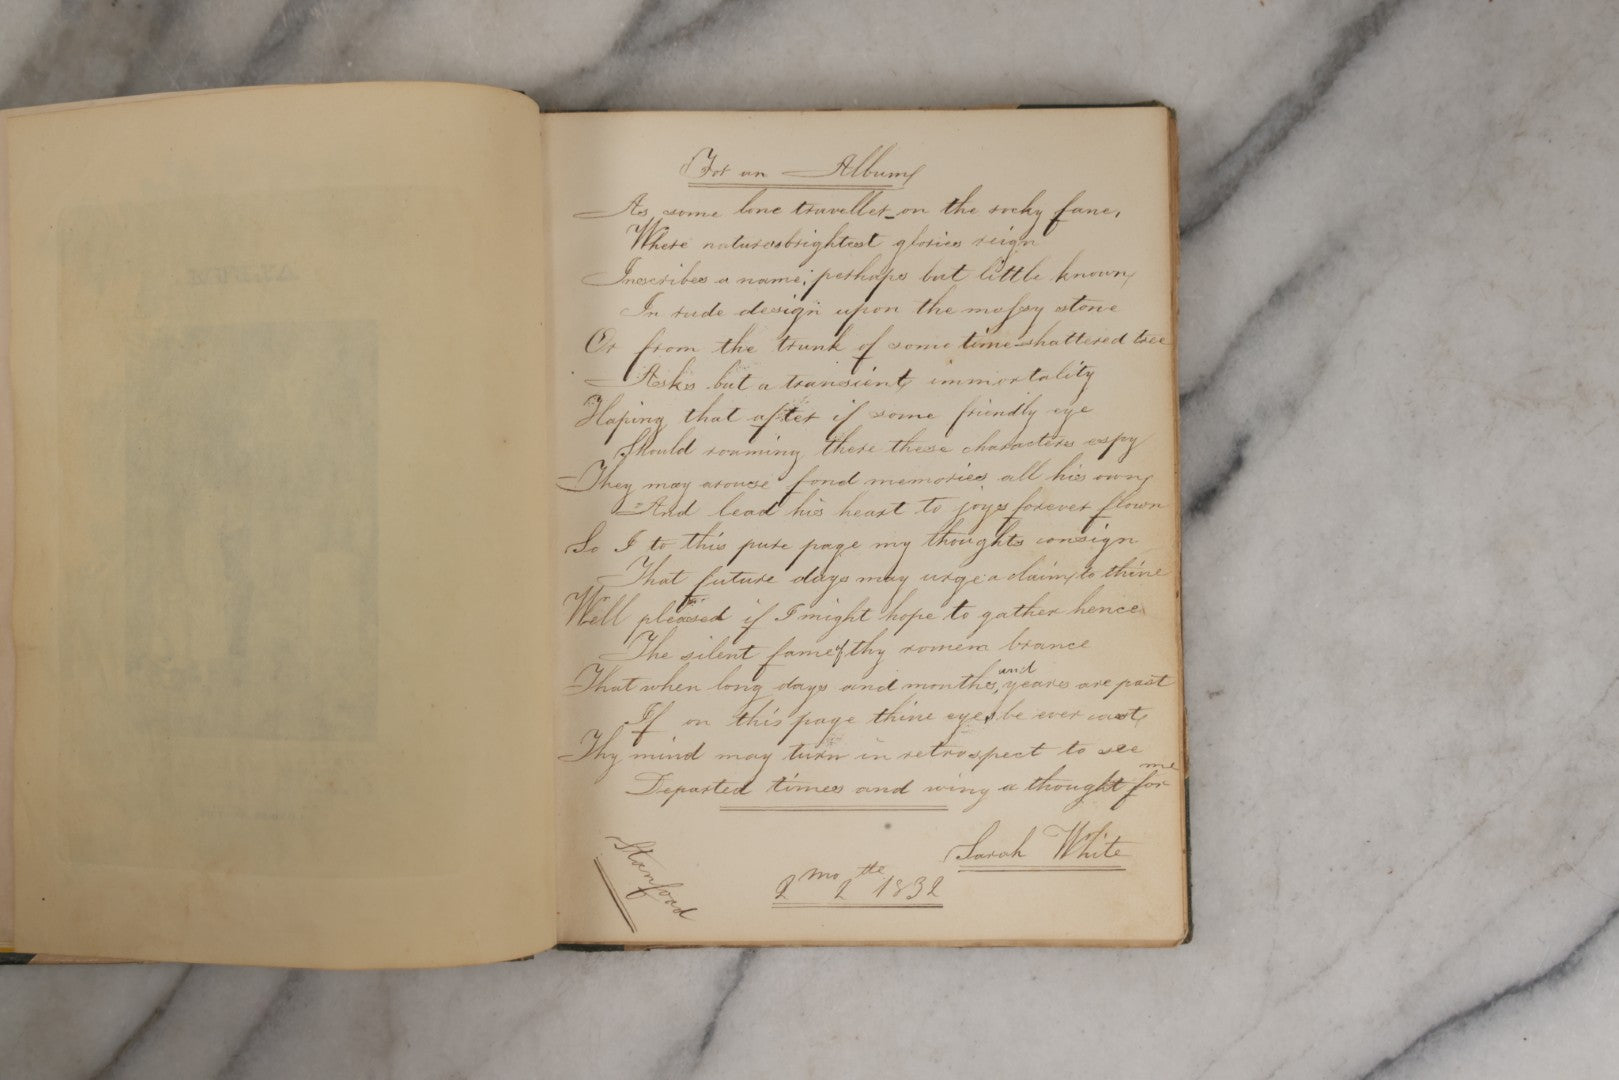 For an Album
As some lone traveller on the rocky fane,
Where natures brightest glories reign
Inscribes a name; perhaps but little known
In rude design upon the mossy stone
Or from the trunk of some time-shattered tree
Asks but a transient immortality
Hoping that after if some friendly eye
Should roaming there these characters espy
They may arouse fond memories all his own
And lead his heart to joys forever flown
So I to this pure page my thoughts consign
That future days may urge a claim to thine
Well pleased if I might hope to gather hence
The silent fame of thy remem brance
That when long days and months and years are past
If on this page thine eyes be ever cast
Thy mind may turn in retrospect to see
Departed times and wing a thought for me
Sarah W White
2 mo 2 the 1832
Stanford
ALBUM